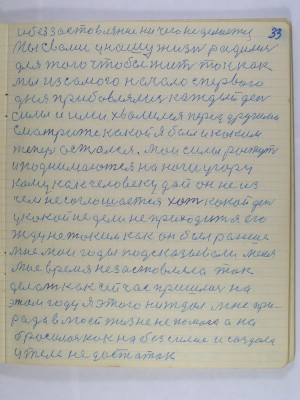 33
и без заставляни ни чего не делаете
Мы с вами у нашу жизн ради
для того чтобы жит то как
мы из самого начало с первого
дня прибавляли каждый ден
силы и ими хвалился перед друзями
смотрите какой я был и каким
тепер остался. Мои силы растут
и поднимаются на ногу у гору
кому как человеку дай он не из
чем не соглашается хот какой ден
у какой недели не приходится его
жду не таким как он был ранеше
мне мои годы подсказывали меня
мое время не заставляла так
делат как сейчас пришлос на
этом году я этого ни ждал мене при
рада в моей жизне не помогла а на
бросилас как на безсилие и создала
у теле не достаток